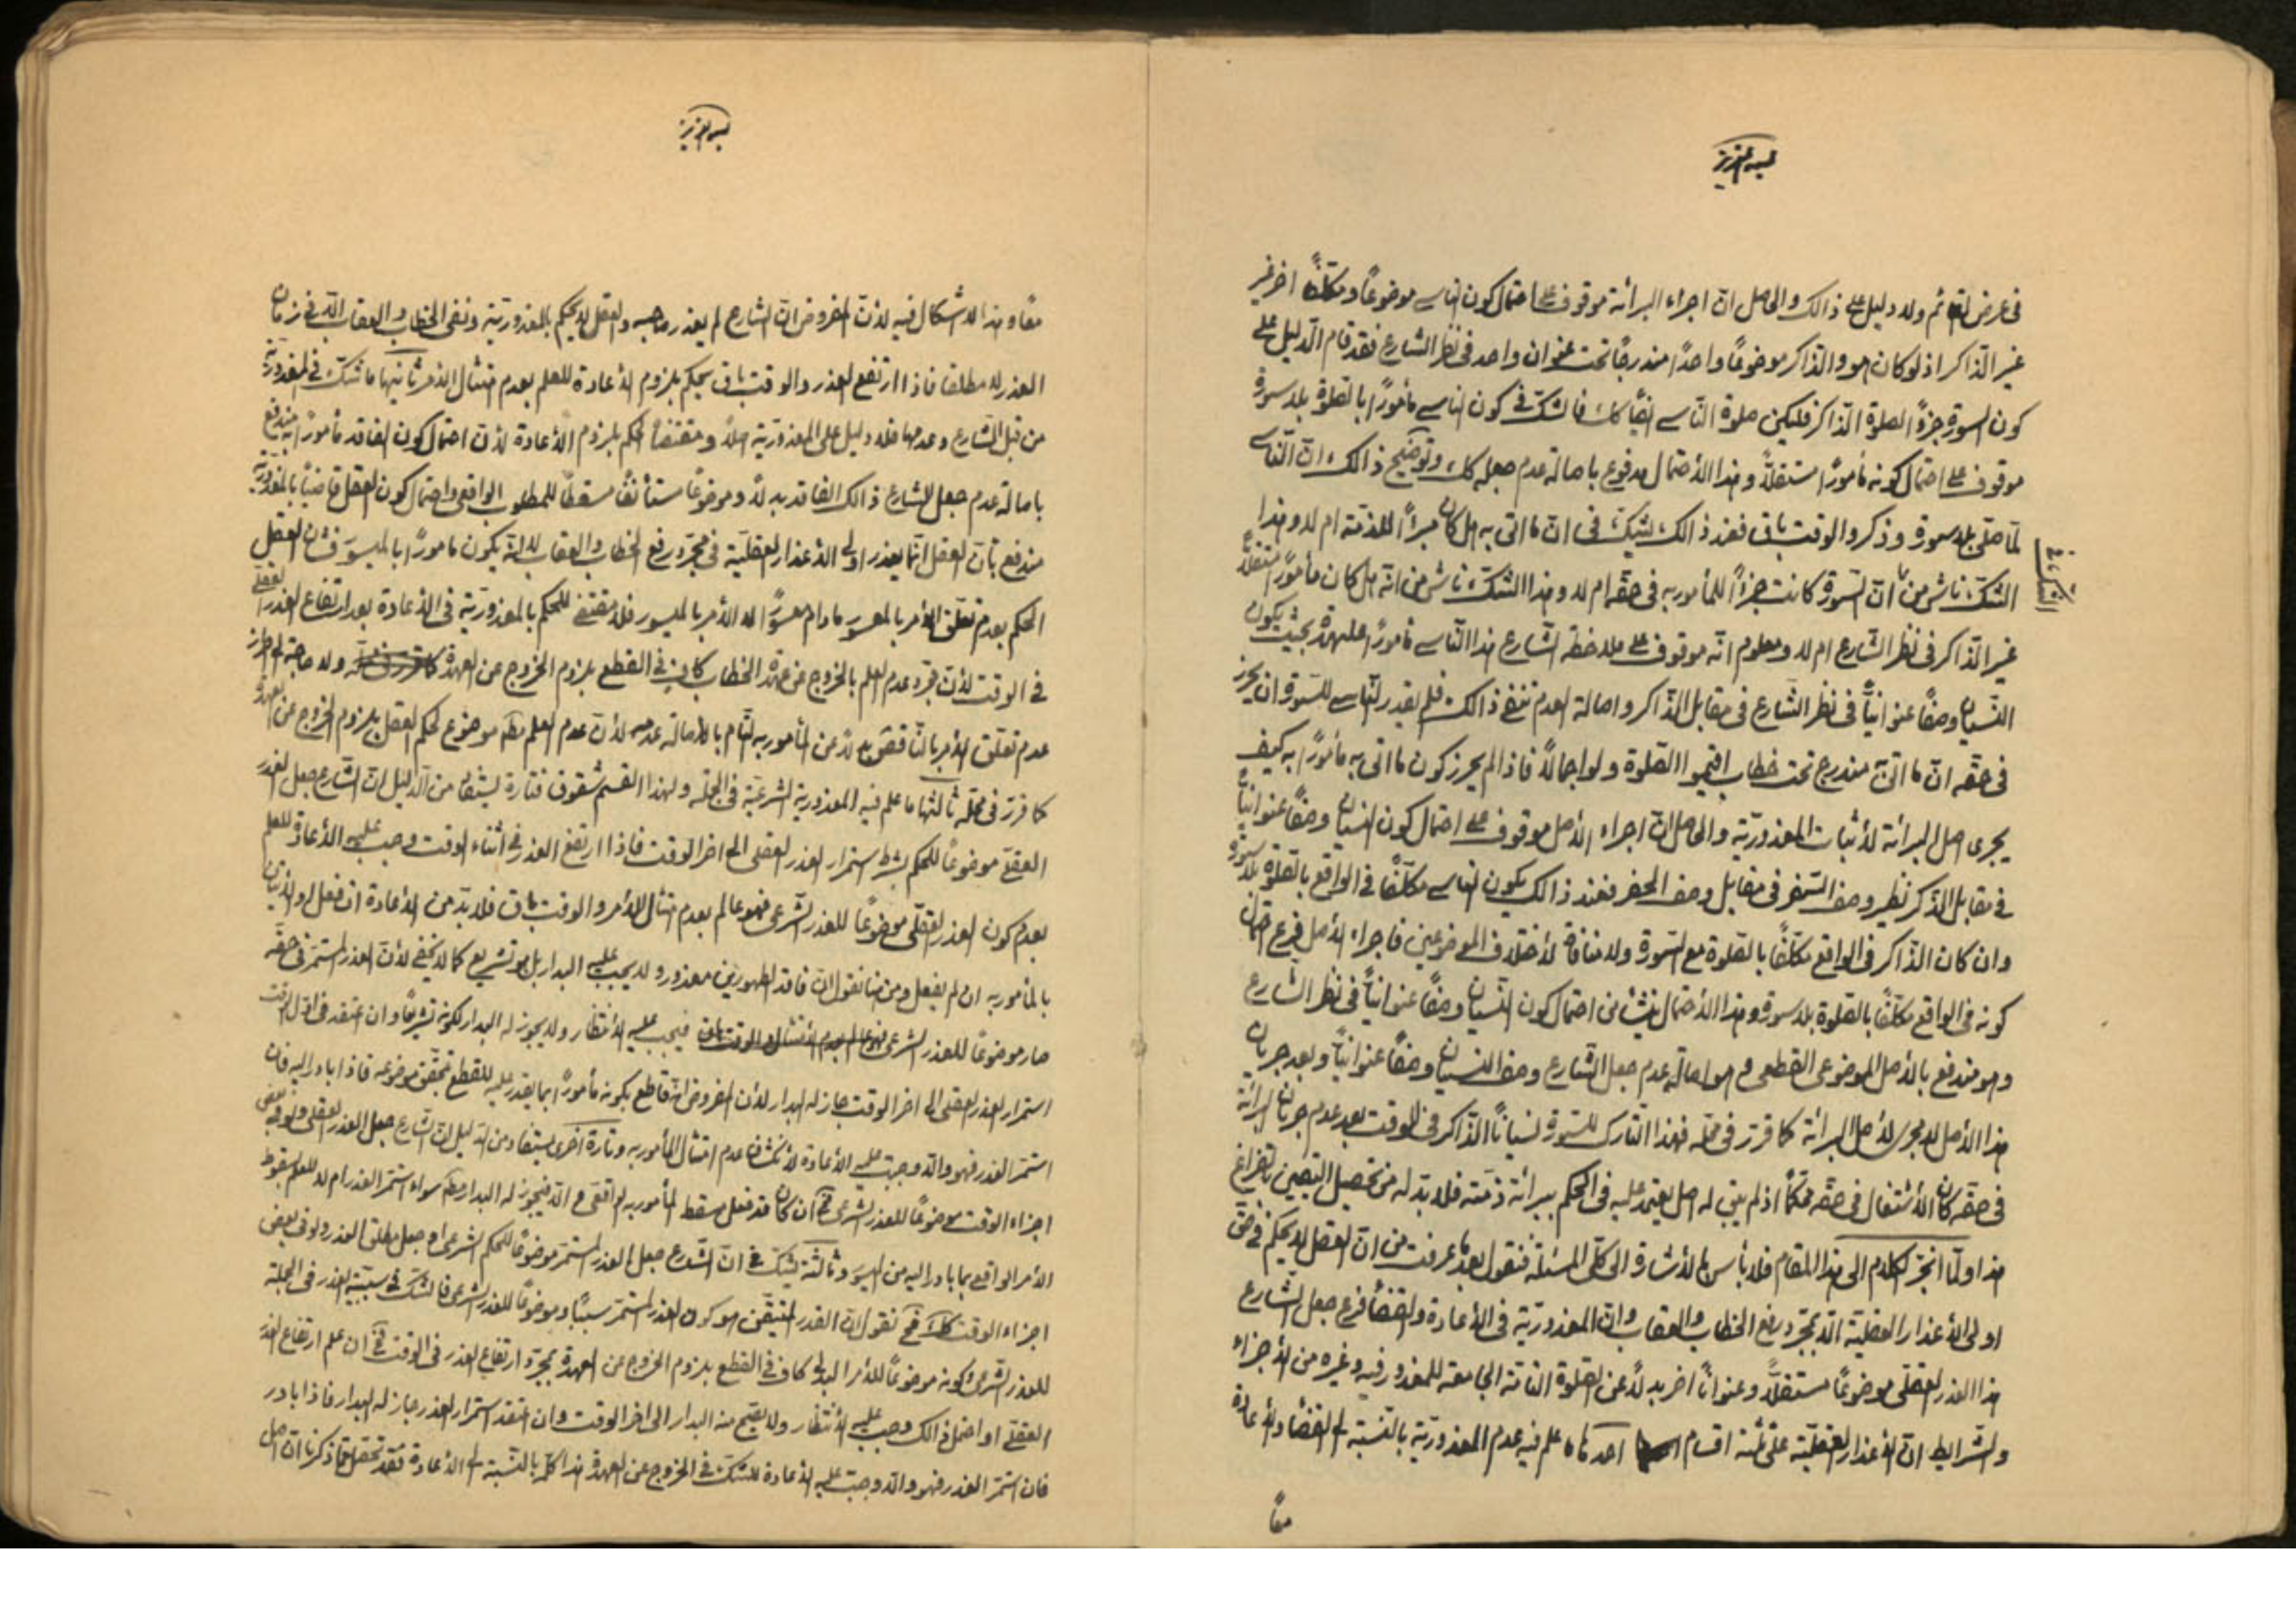 بسمه العزيز
فى عرض القائم ولا دليل على ذالك والحاصل ان اجراء البرائة موقوف على احتمال كون الناسى موضوعاً ومكلفاً اخر غير
غير الذاكر اذ لو كان هو والذاكر موضوعاً واحداً مندرجاً تحت عنوان واحد فى نظر الشارع فقد قام الدليل على
كون السورة جزء الصلوة الذاكر فليكن صلوة الناسى ايضاً كك فالشك فى كون الناسى مأموراً بالصلوة بلا سورة
موقوف على احتمال كونه مأموراً مستقلاً وهذا الأحتمال مدفوع باصالة عدم جعله كك وتوضيح ذالك ان الناسى
لما صلى بلا سورة وذكر والوقت باق فعند ذالك يشك فى ان ما اتى به هل كان مبرأً للذمة ام لا وهذا
الشك ناش من ان السورة كانت جزءاً للمأمور به فى حقه ام لا وهذا الشك ناش من انه هل كان مأموراً مستقلاً
غير الذاكر فى نظر الشارع ام لا ومعلوم انه موقوف على ملاحظة الشارع هذا الناسى مأموراً عليهدة بحيث يكون
النسيان وصفاً عنوانياً فى نظر الشارع فى مقابل الذاكر واصالة العدم تنفى ذالك فلم يقدر الناسى للسورة ان يحرز
فى حقه ان ما اتى به مندرج تحت خطاب اقيموا الصلوة ولو اجمالاً فاذا لم يحرز كون ما اتى به مأموراً به كيف
يجرى اصل البرائة لأثبات المعذورية والحاصل ان اجراء الأصل موقوف على احتمال كون النسيان وصفاً عنوانياً
فى مقابل الذكر نظير وصف السفر فى مقابل وصف الحضر فعند ذالك يكون الناسى مكلفاً فى الواقع بالصلوة بلا سورة
وان كان الذاكر فى الواقع مكلفاً بالصلوة مع السورة ولا منافاة لأختلاف الموضوعين فاجراء الأصل فرع احتمال
كونه فى الواقع مكلفاً بالصلوة بلا سورة وهذا الأحتمال ينشأ من احتمال كون النسيان وصفاً عنوانياً فى نظر الشارع
وهو مندفع بالأصل الموضوعى القطعى وهو اصالة عدم جعل الشارع وصف النسيان وصفاً عنوانياً وبعد جريان
هذا الأصل لا مجرى لأصل البرائة كما قرر فى محله فهذا التارك للسورة نسياناً الذاكر فى الوقت بعد عدم جريان البرائة
فى حقه كان الأشتغال فى حقه محكماً اذ لم يبق له اصل يعتمد عليه فى الحكم ببرائة ذمته فلا بد له من تحصيل اليقين بالفراغ
هذا ولما انجر الكلام الى هذا المقام فلا بأس بالأشارة الى كلى المسئلة فنقول بعد ما عرفت من ان العقل لا يحكم فى حق
اولى الأعذار العقلية الا بمجرد رفع الخطاب والعقاب وان المعذورية فى الأعادة والقضاء فرع جعل الشارع
هذا العذر العقلى موضوعاً مستقلاً وعنواناً اخر بدلاً عن الصلوة التامة الجامعة للمعذور فيه وغيره من الأجزاء
والشرايط ان الأعذار العقلية على ثلثة اقسام احدها ما علم فيه عدم المعذورية بالنسبة الى القضاء والأعادة
معاً
بسمه العزيز
معاً وهذا لا اشكال فيه لأن المفروض ان الشارع لم يعذر صاحبه والعقل لا يحكم بالمعذورية ونفى الخطاب والعقاب الا فى زمان
العذر لا مطلقا فاذا ارتفع العذر والوقت باق يحكم بلزوم الأعادة للعلم بعدم امتثال الأمر ثانيها ما شك فى المعذورية
من قبل الشارع وعدمها فلا دليل على المعذورية اصلاً ومقتضاه الحكم بلزوم الأعادة لأن احتمال كون الفاقد مأموراً به مندفع
باصالة عدم جعل الشارع ذالك الفاقد بدلاً وموضوعاً مستأنفاً مسقطاً للمطلوب الواقعى واحتمال كون العقل قاضياً بالمعذورية
مندفع بأن العقل انما يعذر اولى الأعذار العقلية فى مجرد رفع الخطاب والعقاب لا انه يكون مأموراً بالميسور فشان العقل
الحكم بعدم تعلق الأمر بالمعسور ما دام معسوراً لا الأمر بالميسور فلا مقتضى للحكم بالمعذورية فى الأعادة بعد ارتفاع العذر العقلى
فى الوقت لأن مجرد عدم العلم بالخروج عن عهدة الخطاب كاف فى القطع بلزوم الخروج عن العهدة ولا حاجة الى احراز
عدم تعلق الأمر بالناقص بدلاً عن المأمور به التام بالأصالة عدمه لأن عدم العلم مط موضوع لحكم العقل بلزوم الخروج عن العهدة
كما قرر فى محله ثالثها ما علم فيه المعذورية الشرعية فى الجملة ولهذا القسم شقوق فتارة يستفاد من الدليل ان الشارع جعل العذر
العقلى موضوعاً للحكم بشرط استمرار العذر العقلى الى اخر الوقت فاذا ارتفع العذر فى أثناء الوقت وجب عليه الأعادة للعلم
بعدم كون العذر العقلى موضوعاً للعذر الشرعى فهو عالم بعدم امتثال الأمر والوقت باق فلا بد من الأعادة ان فعل او الأتيان
بالمأمور به ان لم يفعل ومن هنا نقول ان فاقد الطهورين معذور ولا يجب عليه البدار بل هو تشريع كما لا يخفى لأن العذر المستمر فى حقه
صار موضوعاً للعذر الشرعى فيجب عليه الأنتظار ولا يجوز له البدار لكونه تشريعاً وان اعتقد فى اول الوقت
استمرار العذر العقلى الى اخر الوقت جاز له البدار لأن المفروض انه قاطع بكونه مأموراً بما يقدر عليه للقطع بتحقق موضوعه فاذا بادر اليه فان
استمر العذر فهو والا وجبت عليه الأعادة لأنكشاف عدم امتثال المأمور به وتارة أخرى يستفاد من الدليل ان الشارع جعل العذر العقلى ولو فى بعض
اجزاء الوقت موضوعاً للعذر الشرعى فح ان كان قد فعل سقط المأمور به الواقعى والا فيجوز له البدار مط سواء استمر العذر ام لا للعلم بسقوط
الأمر الواقعى بما بادر اليه من الميسور وثالثة يشك فى ان الشارع جعل العذر المستمر موضوعاً للحكم الشرعى او جعل مطلق العذر ولو فى بعض
اجزاء الوقت كك فح نقول ان القدر المتيقن هو كون العذر المستمر سبباً وموضوعاً للعذر الشرعى فالشك فى سببية العذر فى الجملة
للعذر الشرعى وكونه موضوعاً للأمر البدلى كاف فى القطع بلزوم الخروج عن العهدة بمجرد ارتفاع العذر فى الوقت فح ان علم ارتفاع العذر
العقلى او احتمل ذالك وجب عليه الأنتظار ولا يصح منه البدار الى اخر الوقت وان اعتقد استمرار العذر جاز له البدار فاذا بادر
فان استمر العذر فهو والا وجبت عليه الأعادة للشك فى الخروج عن العهدة هذا كله بالنسبة الى الأعادة فقد تحصل مما ذكرنا ان اصل